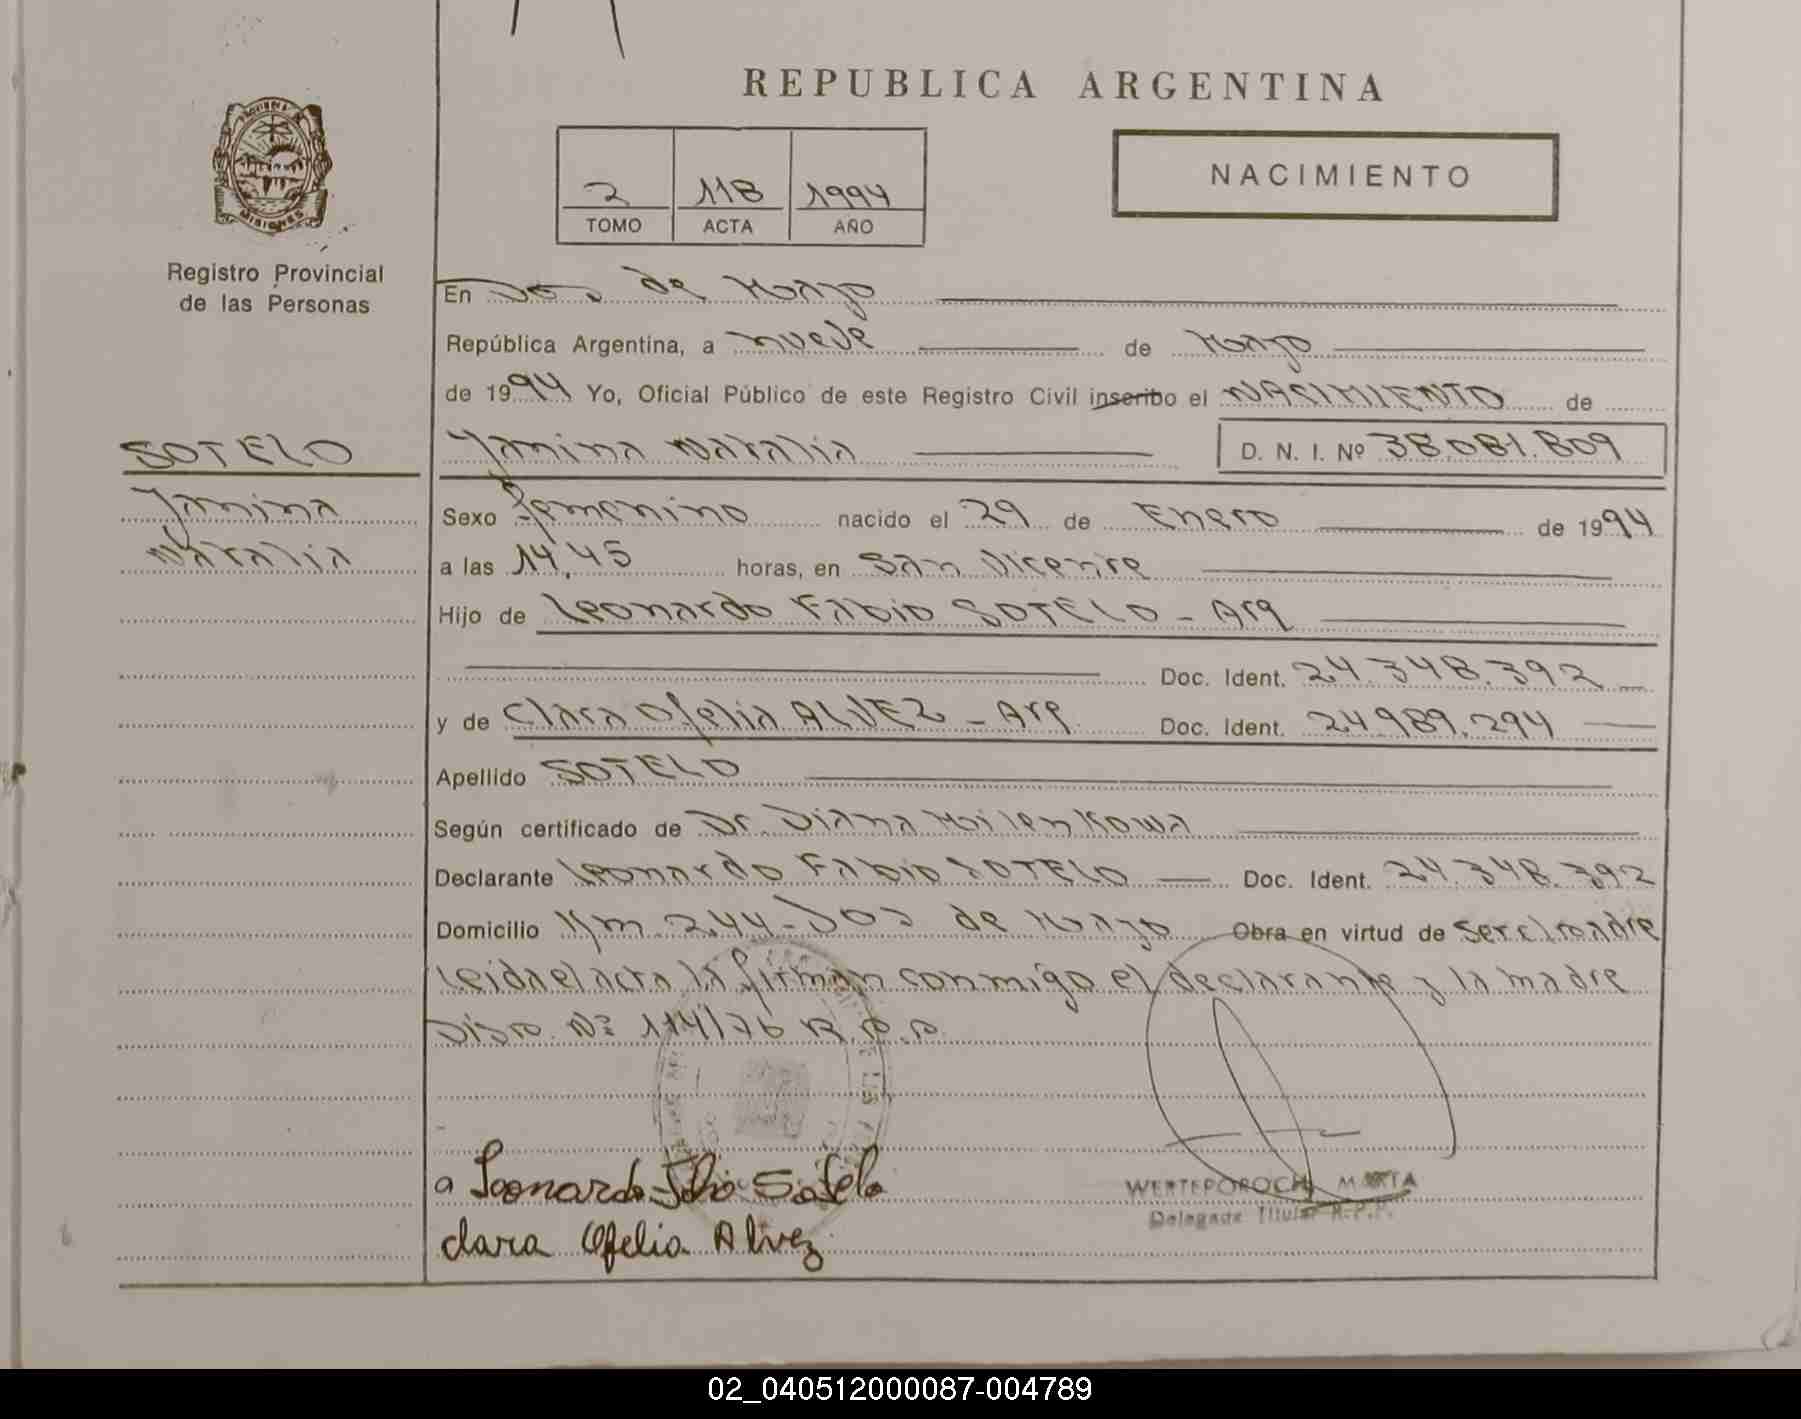 REPUBLICA ARGENTINA
NACIMIENTO
2 118 1994
TOMO ACTA AÑO
MISIONES
Registro Provincial
de las Personas
En Dos de Mayo
República Argentina, a nueve de Mayo
de 1994 Yo, Oficial Público de este Registro Civil inscribo el NACIMIENTO de
SOTELO
Yanina Natalia D. N. I. Nº 38.081.809
Yanina
Natalia
Sexo femenino nacido el 29 de Enero de 1994
a las 14,45 horas, en San Vicente
Hijo de Leonardo Fabio SOTELO - Arg
Doc. Ident. 24.348.392
y de Clara Ofelia ALVEZ - Arg. Doc. Ident. 24.989.294
Apellido SOTELO
Según certificado de Dr. Diana
Declarante Leonardo Fabio SOTELO Doc. Ident. 24.348.392
Domicilio Km. 244 - Dos de Mayo Obra en virtud de Ser el padre
Leida el acta la firman conmigo el declarante y la madre
Disp. Nº 114/76 R.P.P.
a Leonardo Fabio Sotelo
Clara Ofelia Alvez
WERTEPOROCH MARTA
Delegada Titular R.P.P.
02_040512000087-004789